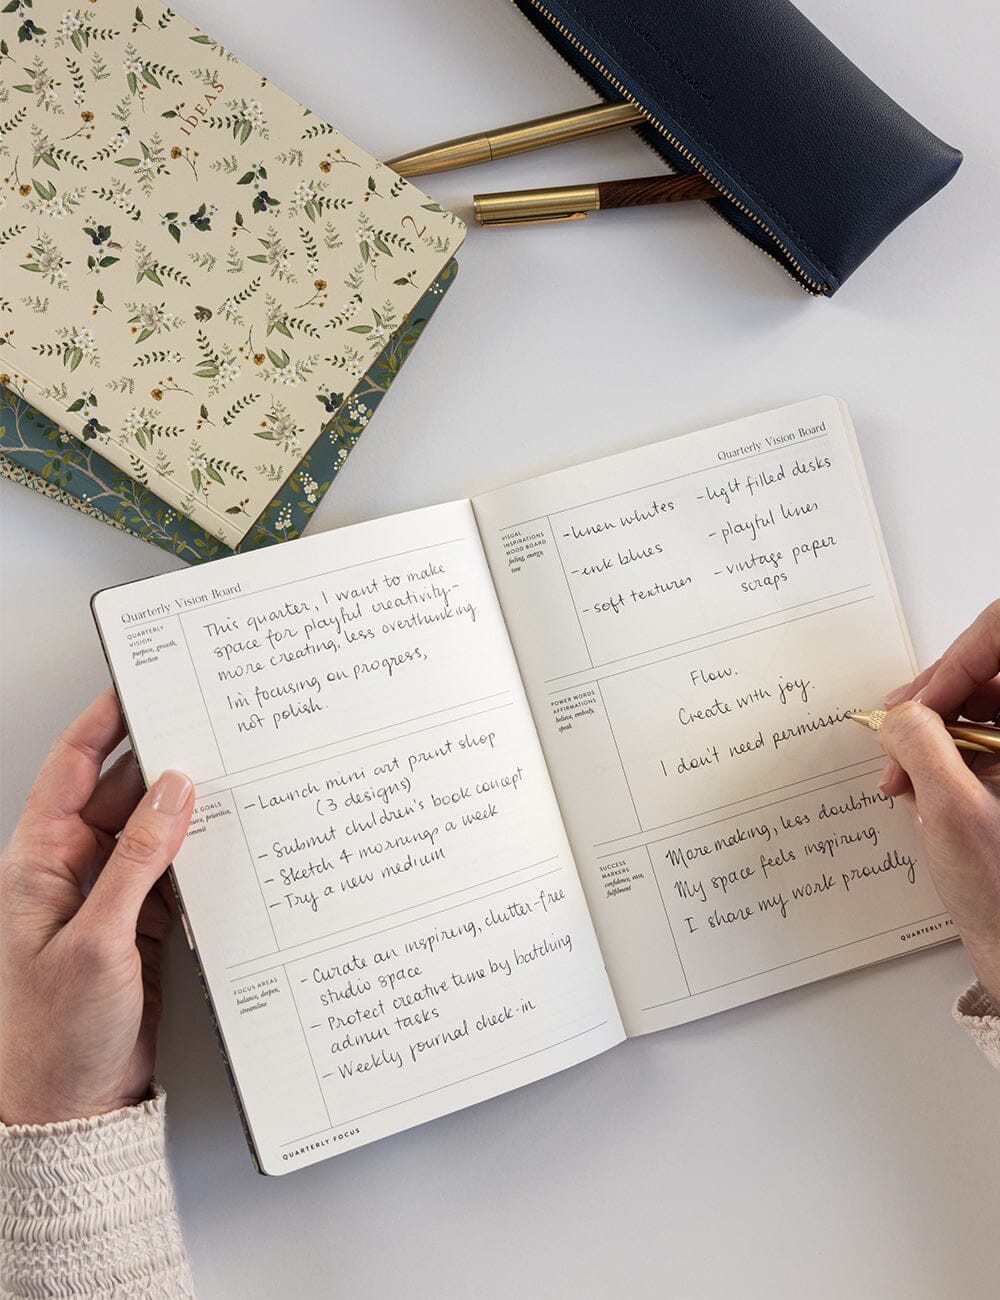 IDEAS
2
Quarterly Vision Board
QUARTERLY
VISION
purpose, growth,
direction
This quarter, I want to make
space for playful creativity-
more creating, less overthinking.
I'm focusing on progress,
not polish.
GOALS
commit
- Launch mini art print shop
(3 designs)
- Submit children's book concept
- Sketch 4 mornings a week
- Try a new medium
FOCUS AREAS
balance, deepen,
streamline
- Curate an inspiring, clutter-free
studio space
- Protect creative time by batching
admin tasks
- Weekly journal check-in
QUARTERLY FOCUS
Quarterly Vision Board
VISUAL
INSPIRATIONS
MOOD BOARD
feeling, energy,
tone
- linen whites
- ink blues
- soft textures
- light filled desks
- playful lines
- vintage paper
scraps
POWER WORDS
AFFIRMATIONS
believe, embody,
speak
Flow.
Create with joy.
I don't need permission
SUCCESS
MARKERS
confidence, ease,
fulfilment
More making, less doubting.
My space feels inspiring.
I share my work proudly.
QUARTERLY